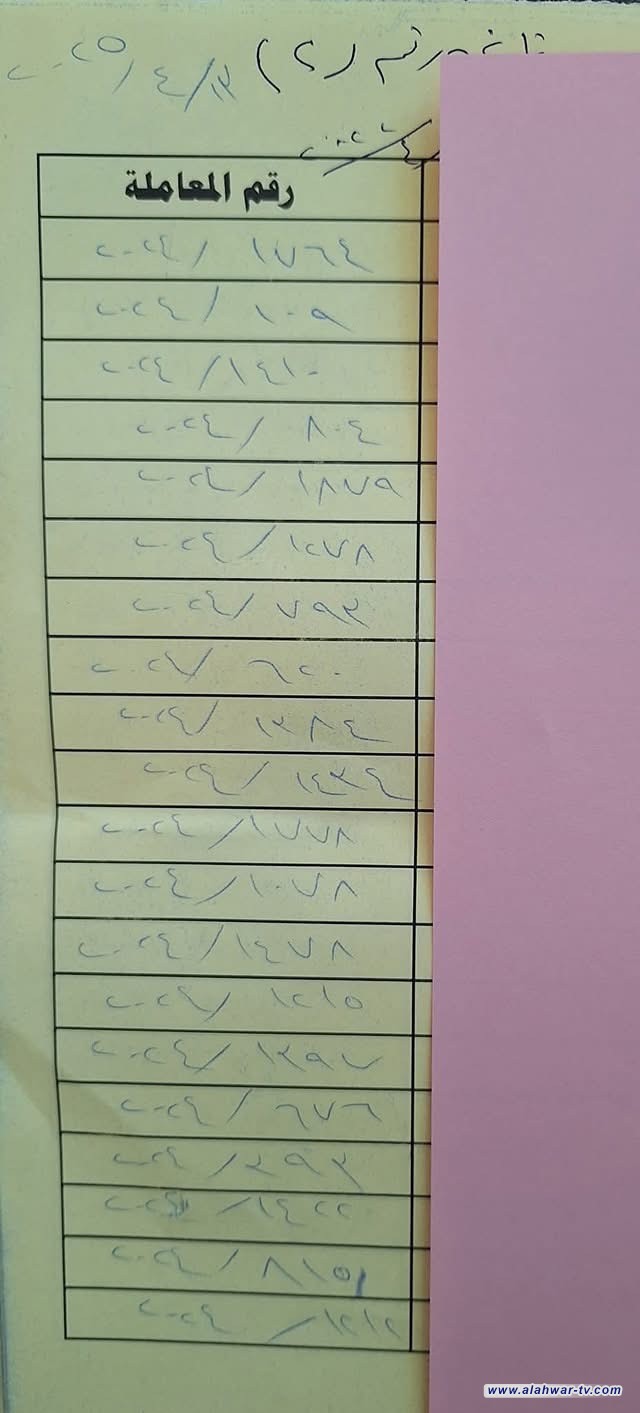 رقم (٢) ٢٠٢٥/٤/١٣
رقم المعاملة
١٧٦٤ / ٢٠٢٤
١٠٩ / ٢٠٢٤
١٤١٠ / ٢٠٢٤
٨٠٤ / ٢٠٢٤
١٨٧٩ / ٢٠٢٤
١٢٧٨ / ٢٠٢٤
٧٩٣ / ٢٠٢٤
٦٢٠ / ٢٠٢٤
١٣٨٤ / ٢٠٢٤
١٤٣٤ / ٢٠٢٤
١٧٧٨ / ٢٠٢٤
١٠٧٨ / ٢٠٢٤
١٤٧٨ / ٢٠٢٤
١٢١٥ / ٢٠٢٤
١٣٩٧ / ٢٠٢٤
٦٧٦ / ٢٠٢٤
٢٩٣ / ٢٠٢٤
١٤٢٢ / ٢٠٢٤
٨١٥١ / ٢٠٢٤
١٢١٢ / ٢٠٢٤
www.alahwar-tv.com